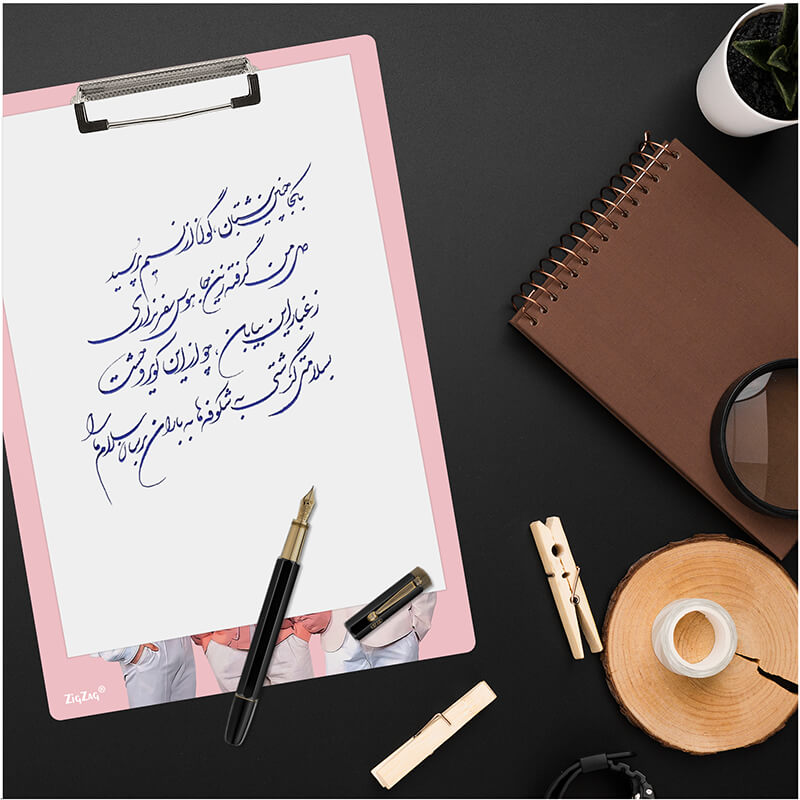 بکجا چنین شتابان، گون از نسیم پرسید
دل من گرفته زین جا هوس سفر نداری
ز غبار این بیابان، چو از این کویر وحشت
بسلامتی گذشتی به شکوفه‌ها به باران برسان سلام ما را
ZIGZAG®